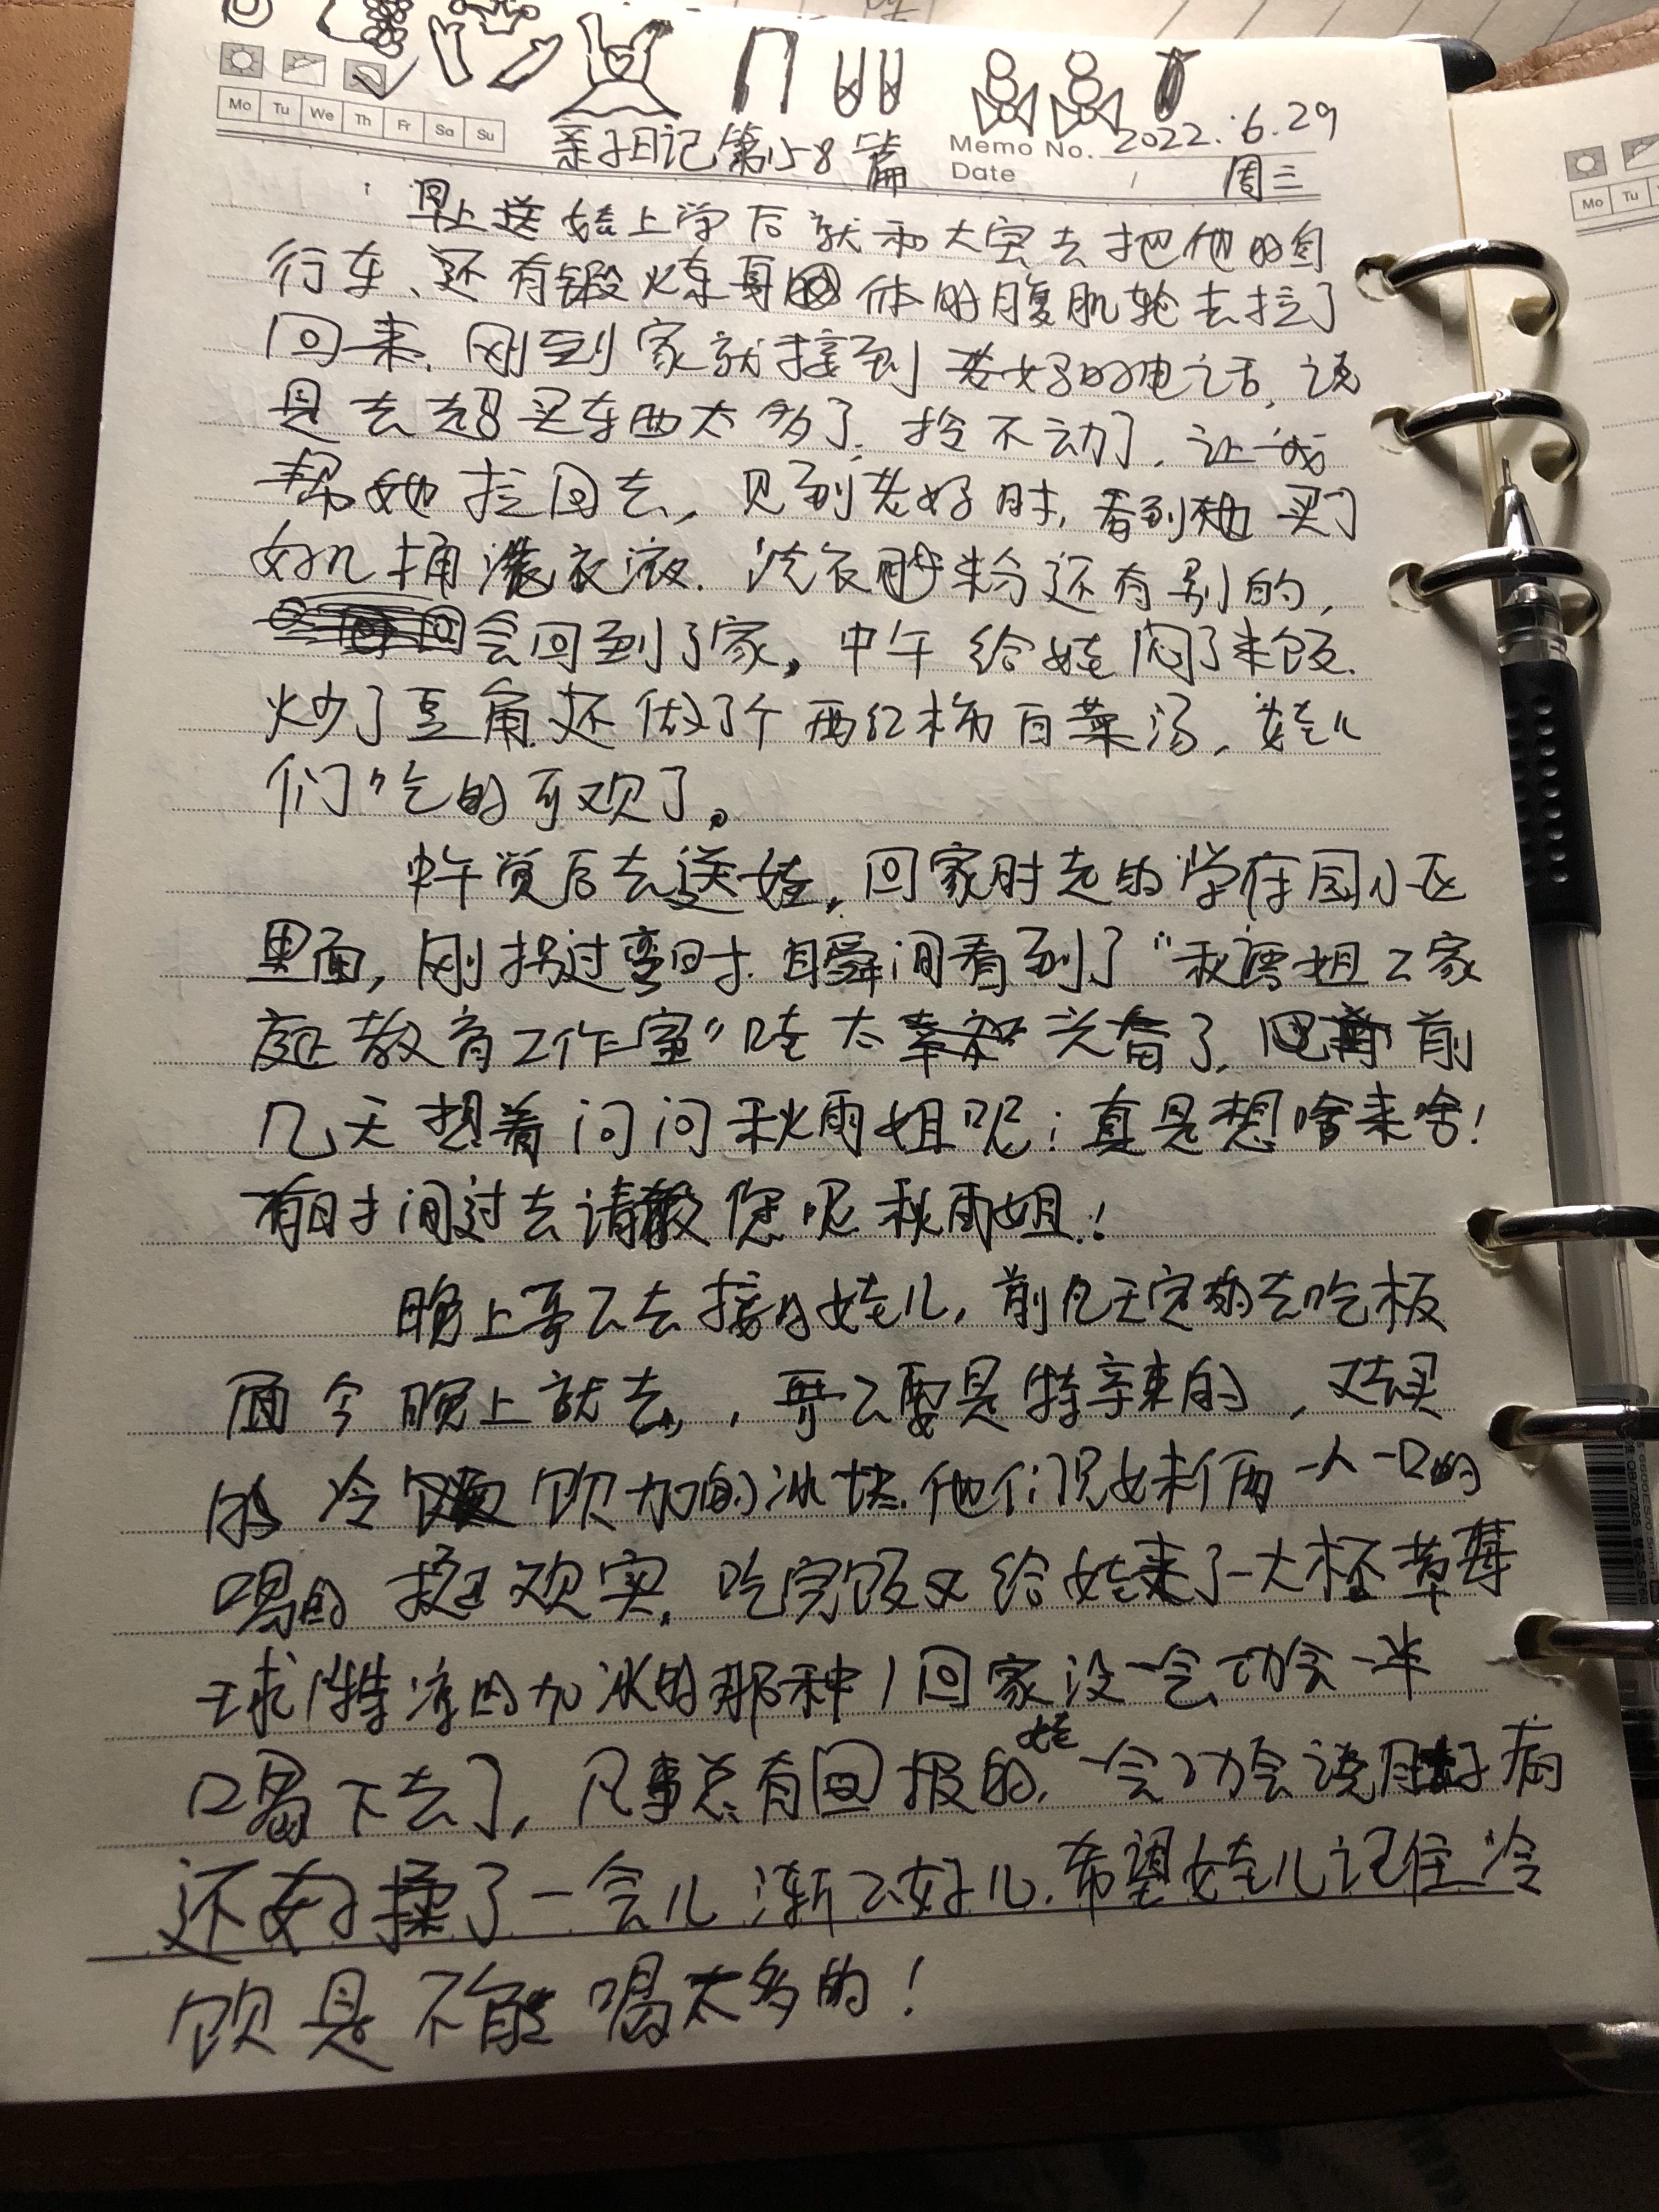 Mo Tu We Th Fr Sa Su
亲子日记第58篇
Memo No. 2022.6.29
Date 周三
早上送娃上学后就和大宝去把他的自
行车、还有锻炼身体的腹肌轮去拉了
回来,刚到家就接到老好的电话,说
是去超买东西太多了.拎不动了,让我
帮她拉回去,见到老好时,看到她买了
好几桶洗衣液.洗衣粉还有别的,
会回到了家,中午给娃闷了米饭.
炒了豆角还做了个西红柿白菜汤,娃儿
们吃的可欢了。
中午觉后去送娃,回家时走的学府园小区
里面,刚拐过弯时.瞬间看到了“秋雨姐工家
庭教育工作室”哇太兴奋了,前
几天想着问问秋雨姐呢;真是想啥来啥!
有时间过去请教您呢秋雨姐!
晚上哥哥去接的娃儿,前几天定的去吃板
面今晚上就去,,哥哥要是特辣的,又去买
的冷饮加的冰块.他们兄妹俩一人一口的
喝的挺欢实,吃完饭又给娃来了一大杯草莓
球(特凉的加冰的那种)回家没一会功夫一半
喝下去了,凡事总有回报的,娃一会功夫说肚子痛
还好揉了一会儿渐渐好儿.希望娃儿记住冷
饮是不能喝太多的!
Mo Tu